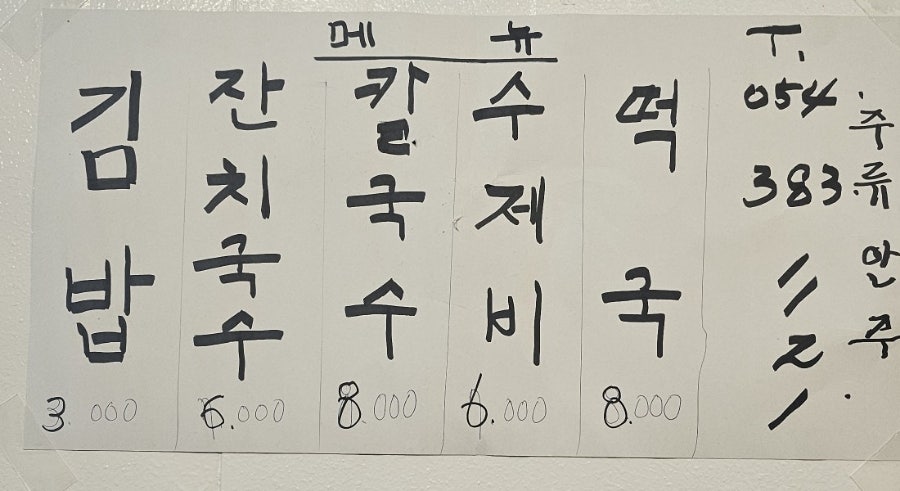 메뉴
김밥 3.000
잔치국수 6.000
칼국수 8.000
수제비 6.000
떡국 8.000
T. 054. 383. 1121.
주류 안주